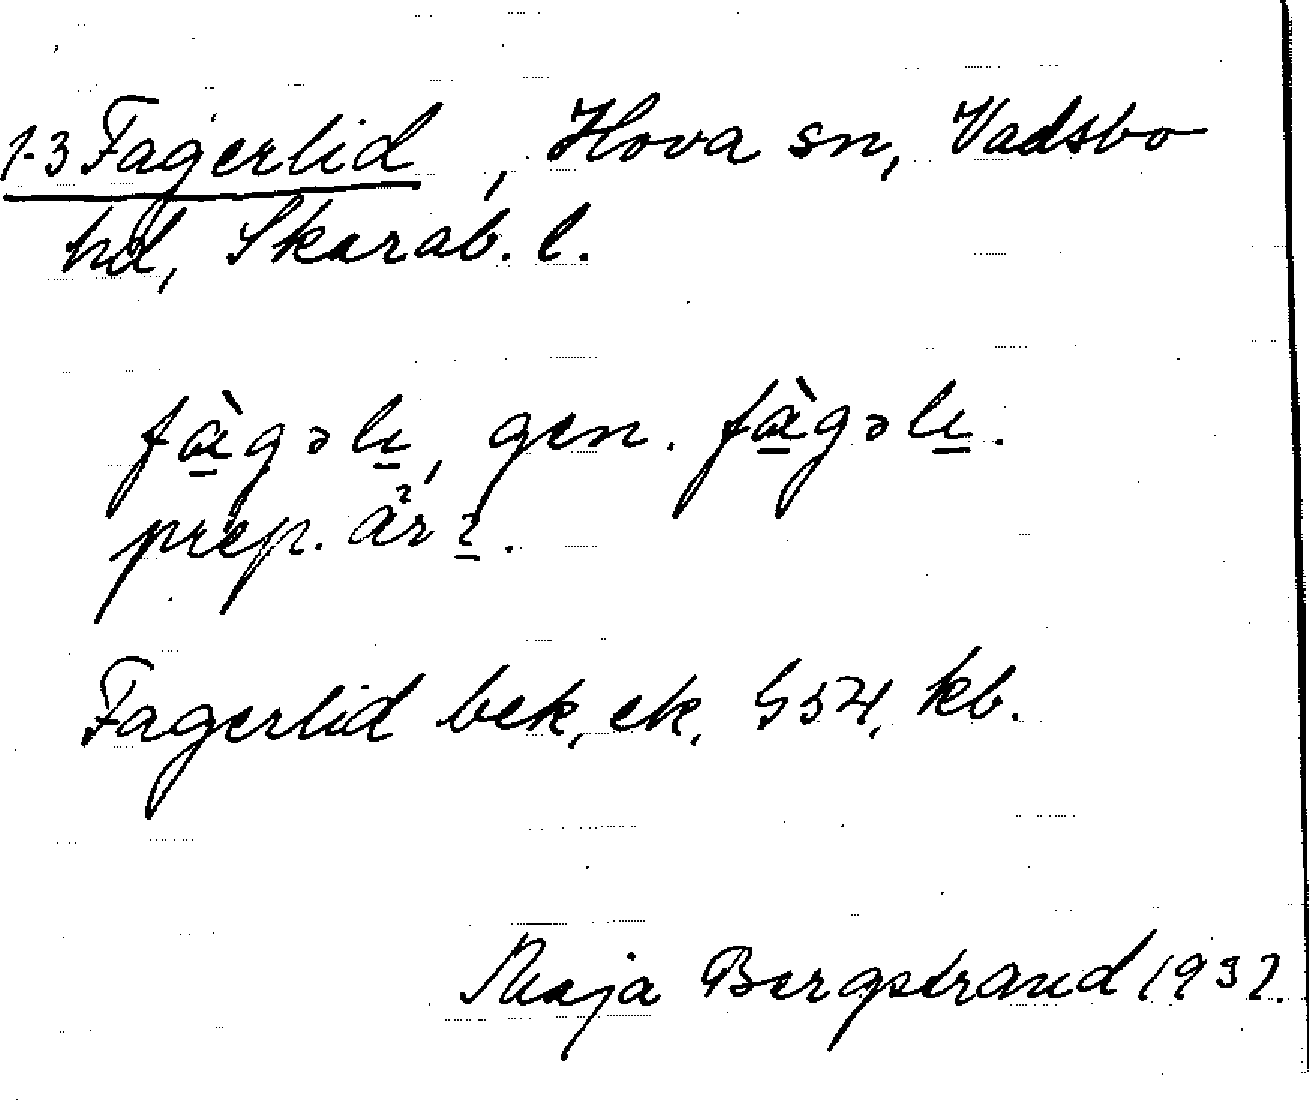 1-3 Fagerlid, Hova sn, Vadsbo
hd, Skarab. l.
fàgəlı, gen. fàgəlı.
prep.
Fagerlid bek, ek, G54, kb.
Maja Bergstrand 1932.